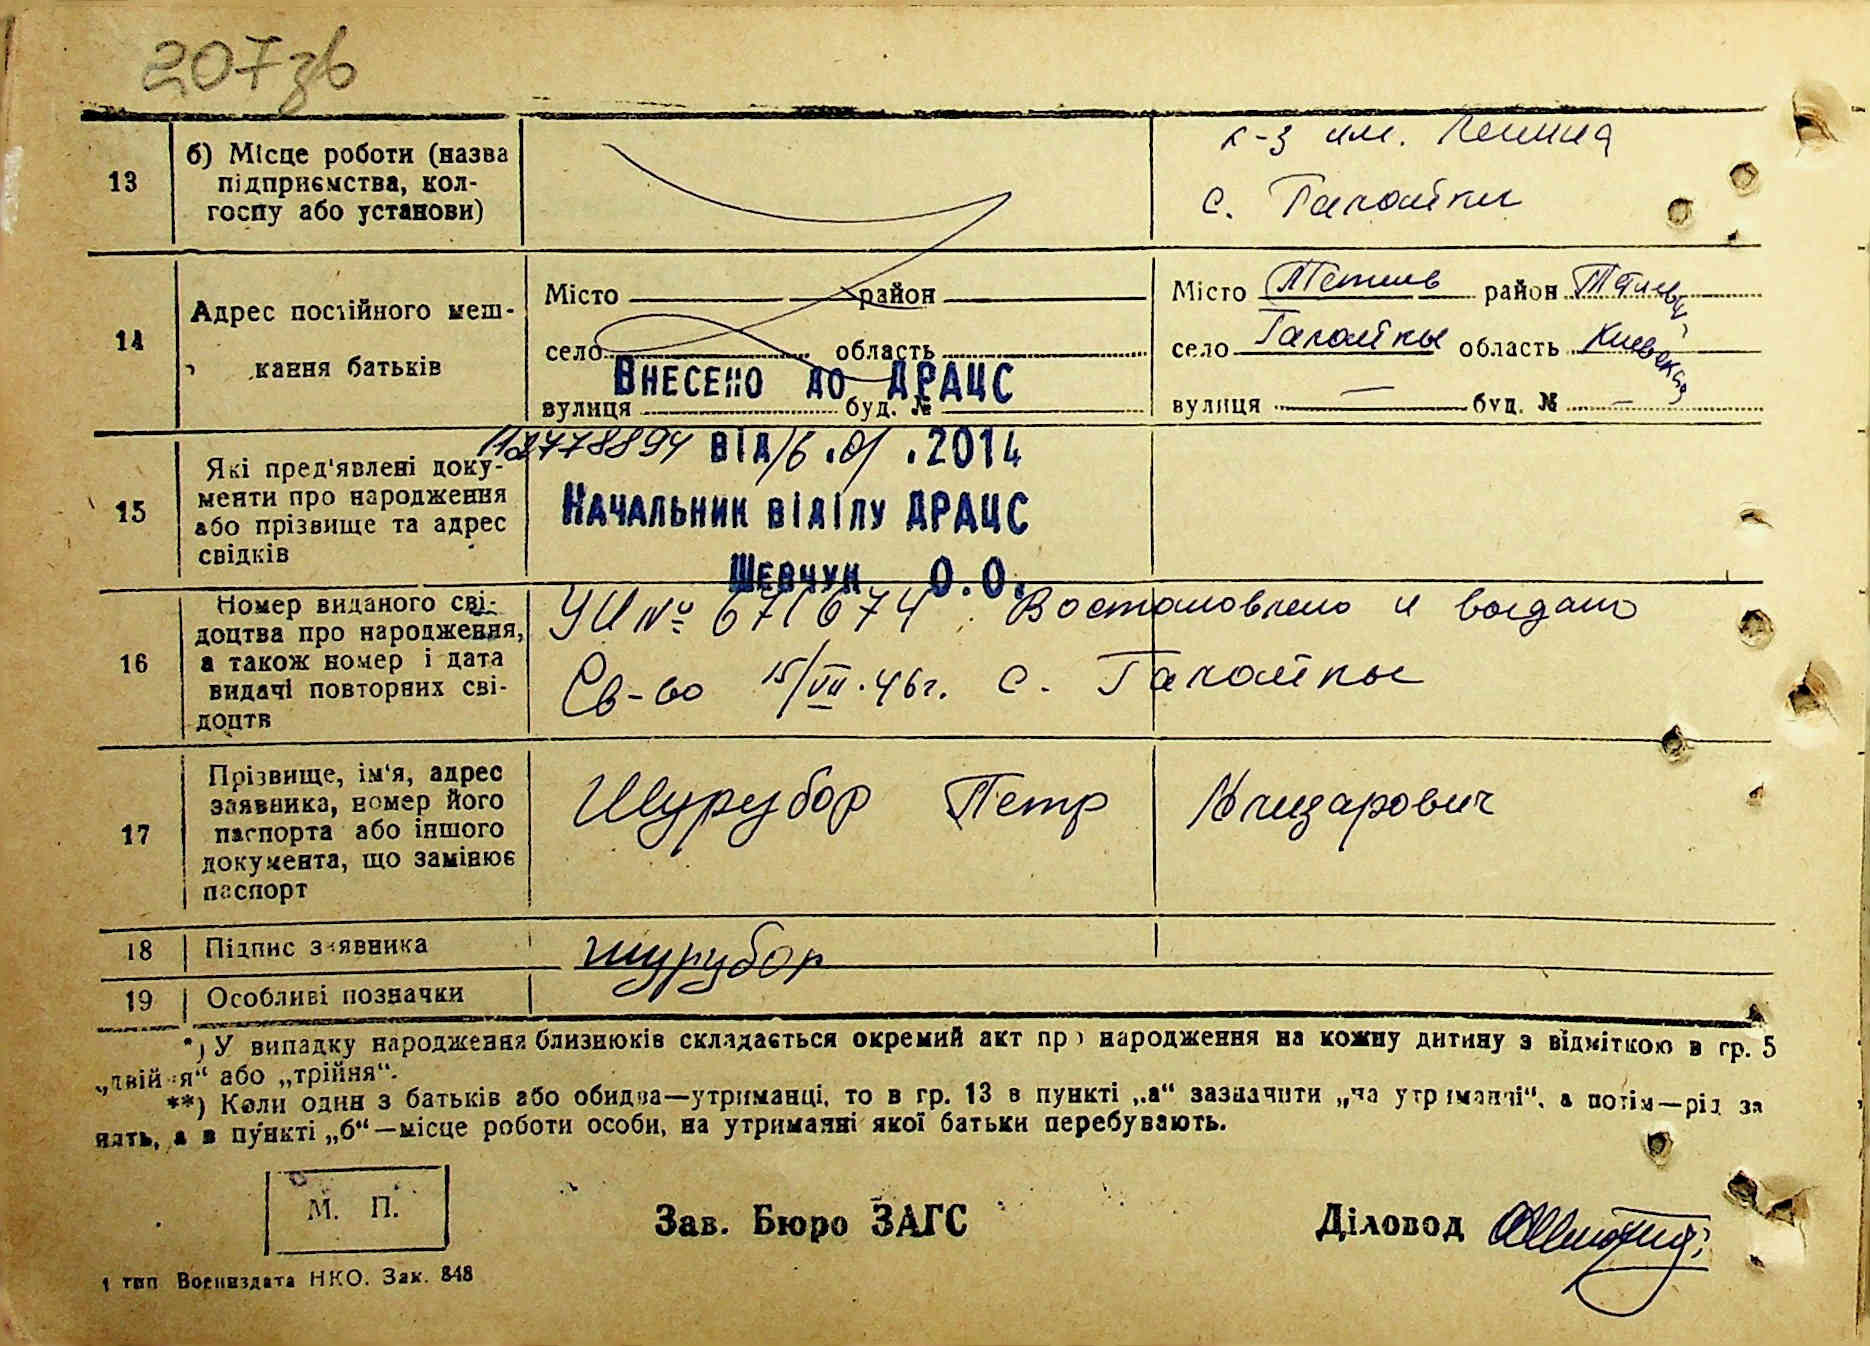 207зв
13
б) Місце роботи (назва
підприємства, кол-
госпу або установи)
к-з им. Ленина
с. Галайки
14
Адрес постійного меш-
кання батьків
Місто район
село область
вулиця буд. №
Місто Тетиев район Тетиевск
село Галайки область Киевская
вулиця — буд. № —
Внесено до ДРАЦС
від 16.01.2014
Начальник відділу ДРАЦС
Шевчук О.О.
15
Які пред'явлені доку-
менти про народження
або прізвище та адрес
свідків
16
Номер виданого сві-
доцтва про народження,
а також номер і дата
видачі повторних сві-
доцтв
УИ № 671674. Востановлено и выдано
Св-во 15/VII.46г. с. Галайки
17
Прізвище, ім'я, адрес
заявника, номер його
паспорта або іншого
документа, що замінює
паспорт
Шурубор Петр
18
Підпис заявника
Шурубор
19
Особливі позначки
*) У випадку народження близнюків складається окремий акт про народження на кожну дитину з відміткою в гр. 5
„двійня“ або „трійня“.
**) Коли один з батьків або обидва—утриманці, то в гр. 13 в пункті „а“ зазначити „на утриманні“, а потім—рід за
нять, а в пункті „б“—місце роботи особи, на утриманні якої батьки перебувають.
М. П.
Зав. Бюро ЗАГС
Діловод
1 тип Воениздата НКО. Зак. 848